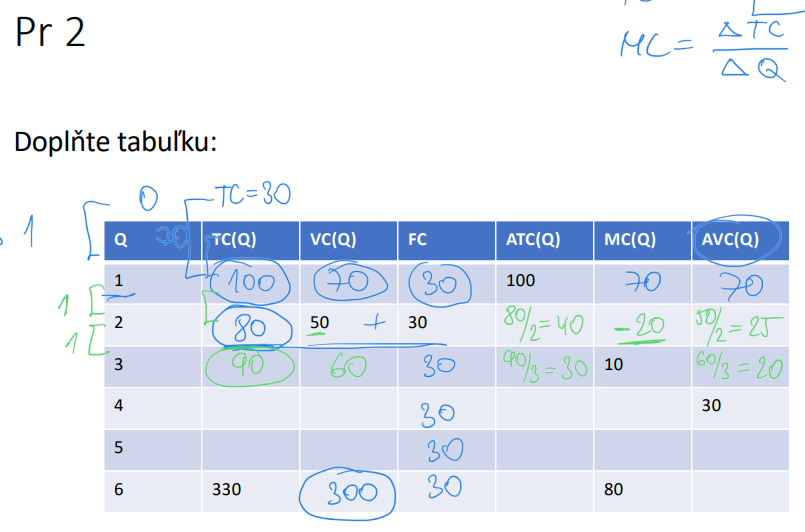 Pr 2
MC = ΔTC / ΔQ
Doplňte tabuľku:
0 TC=30
1
Q 70 TC(Q) VC(Q) FC ATC(Q) MC(Q) AVC(Q)
1 100 70 30 100 70 70
1
2 80 50 + 30 80/2=40 -20 50/2=25
1
3 90 60 30 90/3=30 10 60/3=20
4 30 30
5 30
6 330 300 30 80